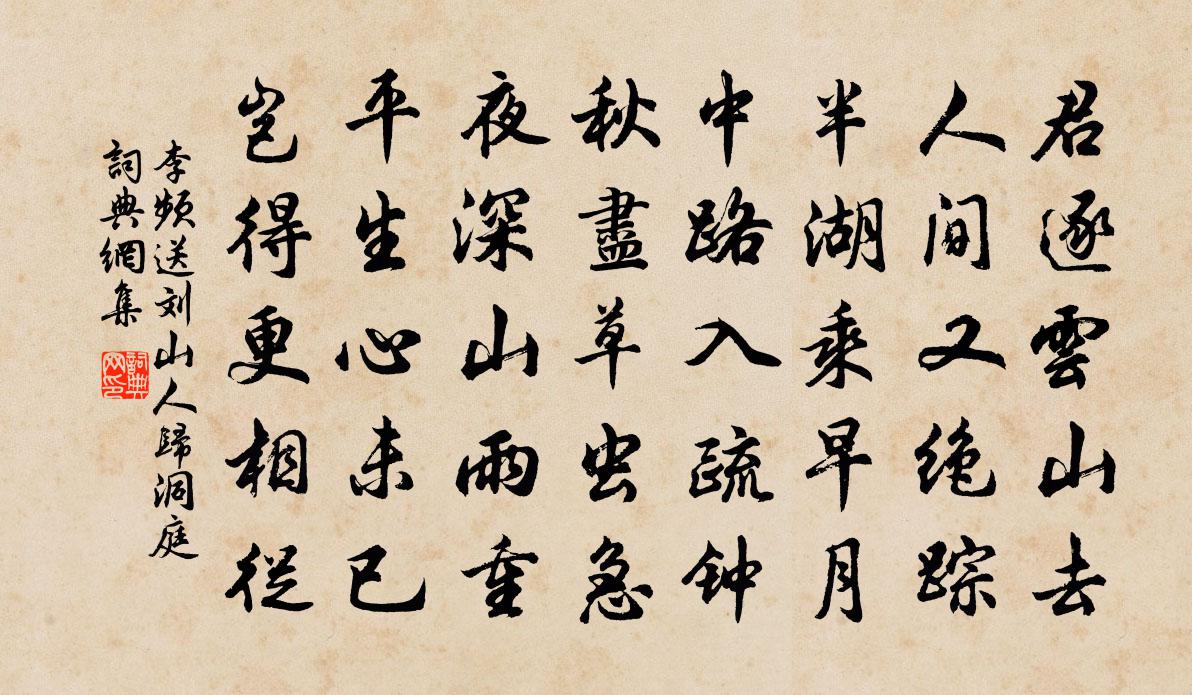 君逐雲山去
人间又绝踪
半湖乘早月
中路入疏钟
秋盡草虫急
夜深山雨重
平生心未已
岂得更相從
李频送刘山人歸洞庭
詞典網集
詞典网印